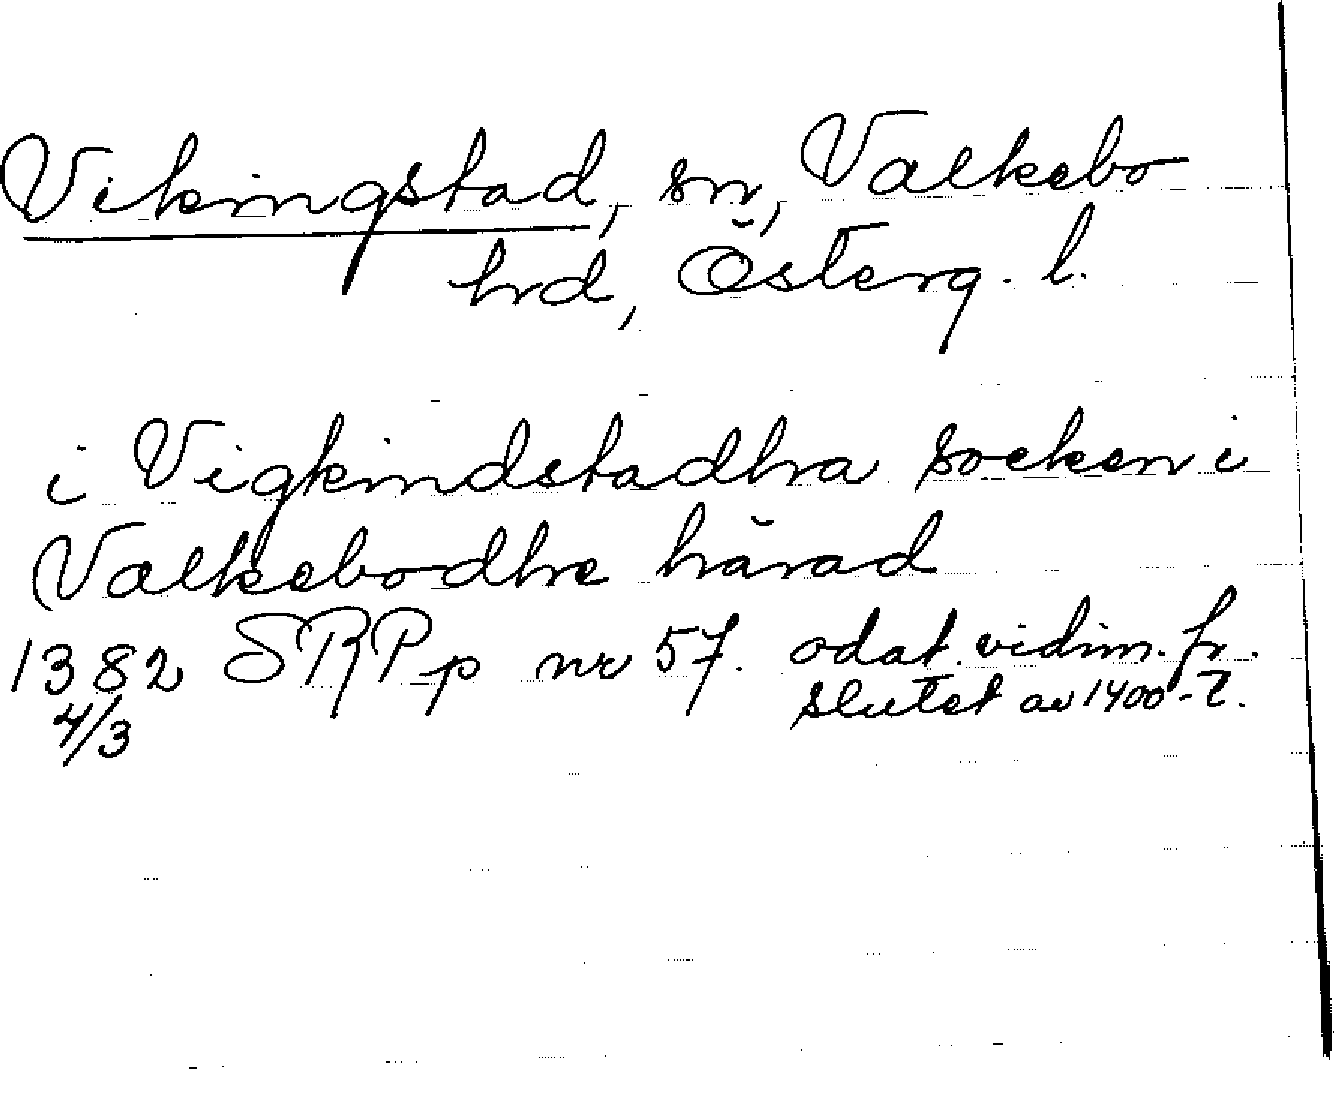 Vikingstad, sn, Valkebo
hrd, Österg. l.
i Vigkindstadhra socken i
Valkebodhre härad
1382 SRPp nr 57. odat. vidim. fr.
4/3 slutet av 1400-t.